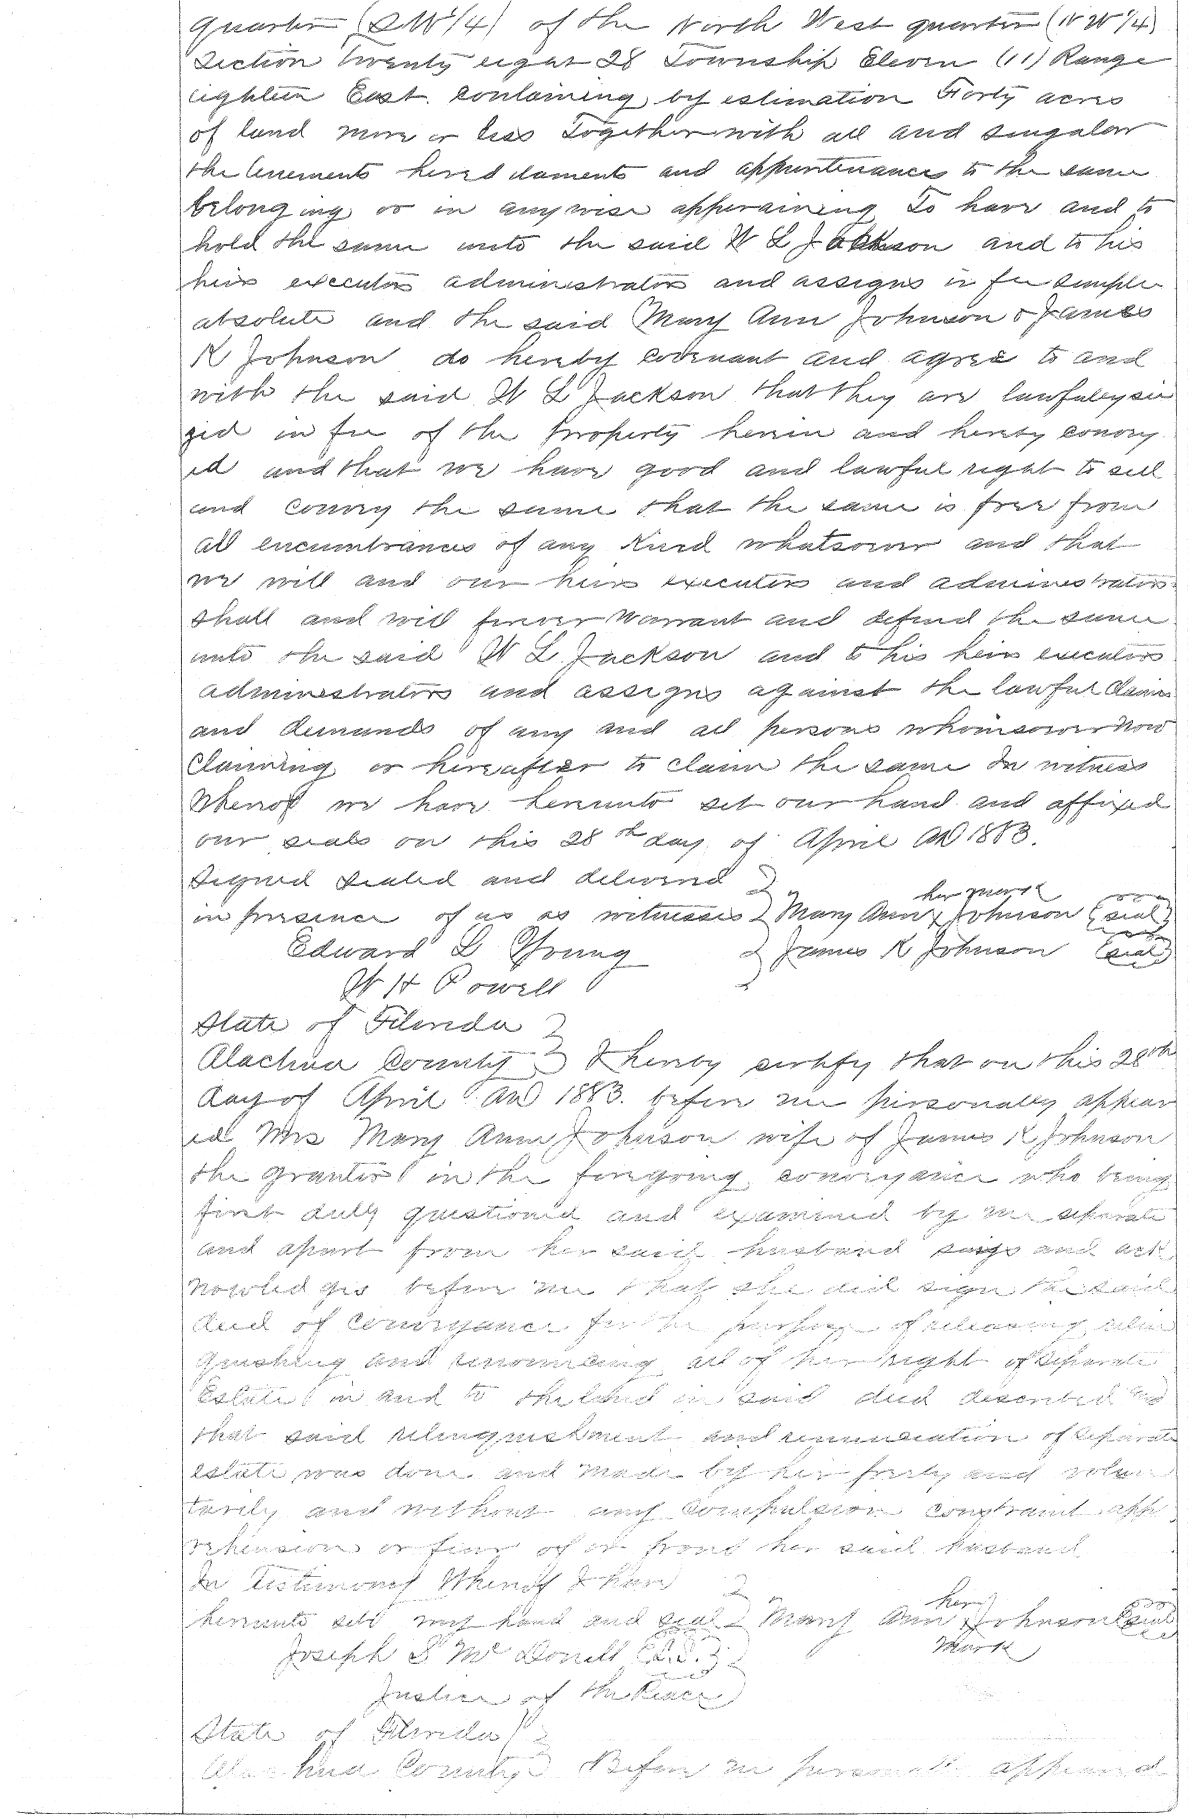 quarter (SW 1/4) of the North West quarter (NW 1/4)
Section twenty eight 28 Township Eleven (11) Range
eighteen East. containing by estimation Forty acres
of land more or less Together with all and singular
the tenements heredetaments and appurtenances to the same
belonging or in anywise apperaining To have and to
hold the same unto the said W L Jackson and to his
heirs executors administrators and assigns in fee simple
absolute and the said Mary Ann Johnson & James
K Johnson do hereby covenant and agree to and
with the said W L Jackson that they are lawfuley sie
zed in fee of the property herein and hereby convey
ed and that we have good and lawful right to sell
and convey the same that the same is free from
all encumbrances of any kind whatsoever and that
we will and our heirs executors and administrators
shall and will forever warrant and defend the same
unto the said W L Jackson and to his heirs executors
administrators and assigns against the lawful claims
and demands of any and all persons whomsoever now
claiming or hereafter to claim the same In witness
Whereof we have hereunto set our hand and affixed
our seals on this 28th day of April AD 1883.
Signed sealed and delivered
her mark
in presence of us as witnesses Mary Ann x Johnson (seal)
Edward L Young James K Johnson (seal)
W H Powell
State of Florida
Alachua County I hereby certify that on this 28th
day of April AD 1883. before me personally appear
ed Mrs Mary Ann Johnson wife of James K Johnson
the grantor in the foregoing conveyance who being
first duly questioned and examined by me separate
and apart from her said husband says and ack
nowledges before me that she did sign the said
deed of conveyance for the purpose of releasing relin
quishing and renouncing all of her right of separate
Estate in and to the land in said deed described and
that said relinquishment and renunciation of separate
estate was done and made by her freely and volun
tarily and without any compulsion constraint appr
rehension or fear of or from her said husband
In Testimony Whereof I have
her
hereunto sett my hand and seal Mary Ann Johnson (seal)
mark
Joseph S McDonell (L.S.)
Justice of the Peace
State of Florida
Alachua County Before me personally appeared